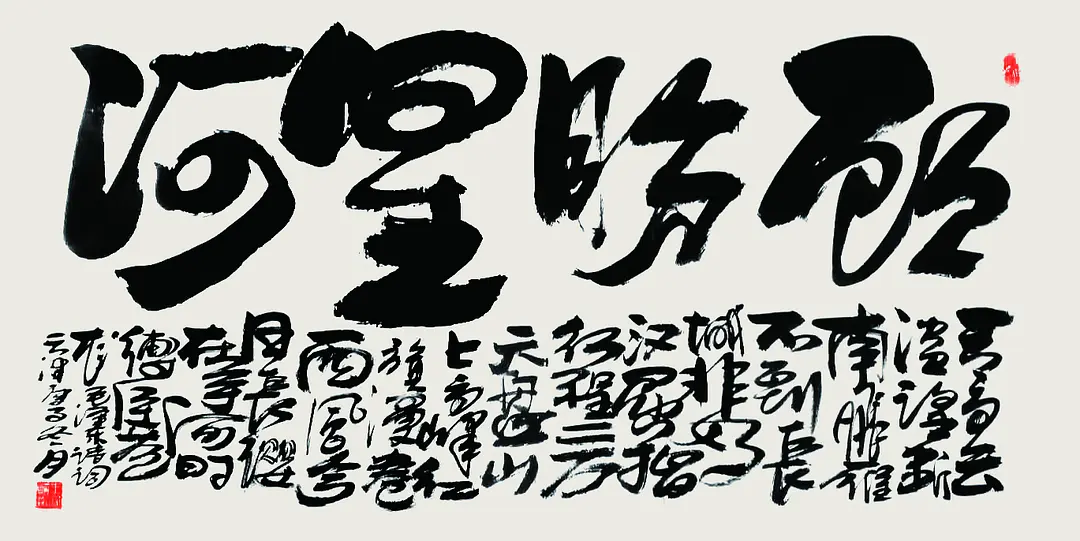 顾盼星河
天高云
淡望断
南飞雁
不到长
城非好
汉屈指
行程二万
六盘山
上高峰红
旗漫卷
西风今
日长缨
在手何时
缚住苍
龙毛泽东诗词